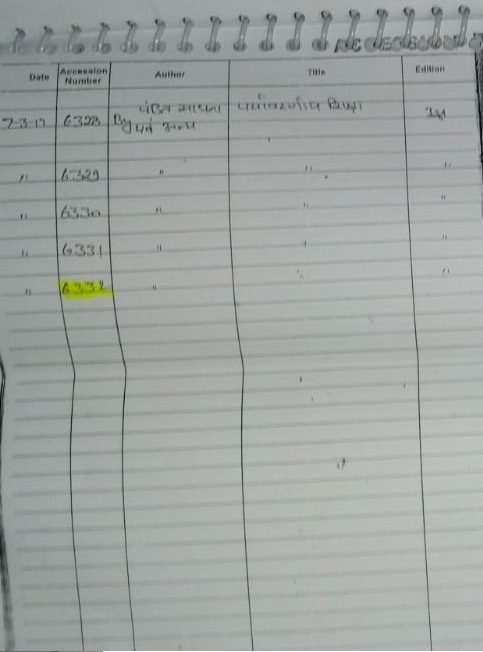 Date Accession Number Author Title Edition
7-3-17 6328 By पंडित साधना पर्यावरणीय शिक्षा Ist
एवं अन्य
" 6329 " " "
" 6330 " " "
" 6331 " " "
" 6332 " " "